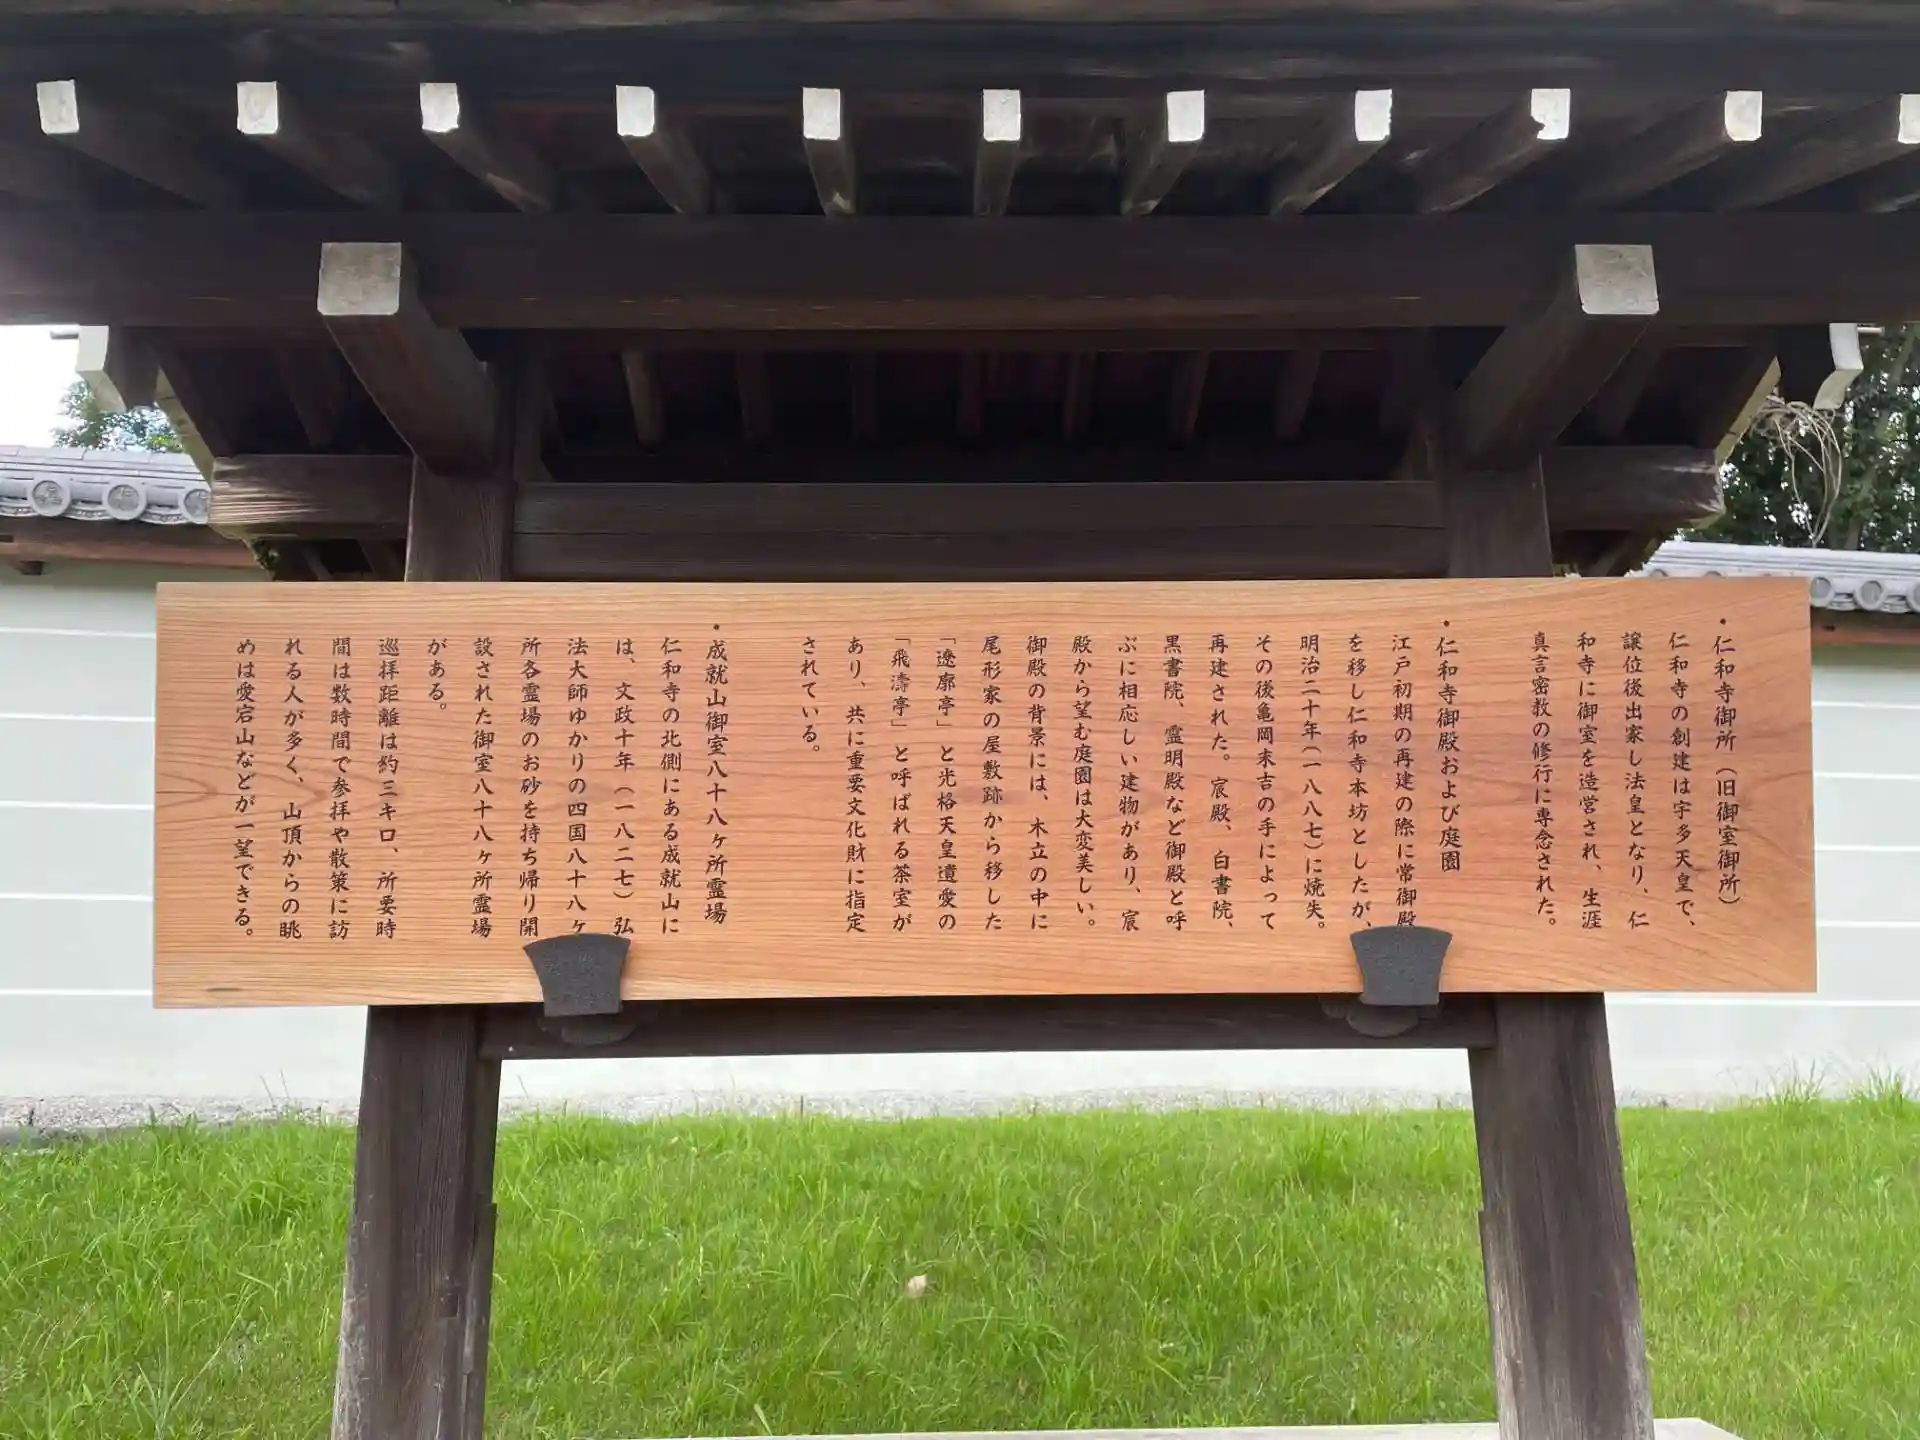 ・仁和寺御所（旧御室御所）
仁和寺の創建は宇多天皇で、
譲位後出家し法皇となり、仁
和寺に御室を造営され、生涯
真言密教の修行に専念された。
・仁和寺御殿および庭園
江戸初期の再建の際に常御殿
を移し仁和寺本坊としたが、
明治二十年（一八八七）に焼失。
その後亀岡末吉の手によって
再建された。宸殿、白書院、
黒書院、霊明殿など御殿と呼
ぶに相応しい建物があり、宸
殿から望む庭園は大変美しい。
御殿の背景には、木立の中に
尾形家の屋敷跡から移した
「遼廓亭」と光格天皇遺愛の
「飛濤亭」と呼ばれる茶室が
あり、共に重要文化財に指定
されている。
・成就山御室八十八ヶ所霊場
仁和寺の北側にある成就山に
は、文政十年（一八二七）弘
法大師ゆかりの四国八十八ヶ
所各霊場のお砂を持ち帰り開
設された御室八十八ヶ所霊場
がある。
巡拝距離は約三キロ、所要時
間は数時間で参拝や散策に訪
れる人が多く、山頂からの眺
めは愛宕山などが一望できる。